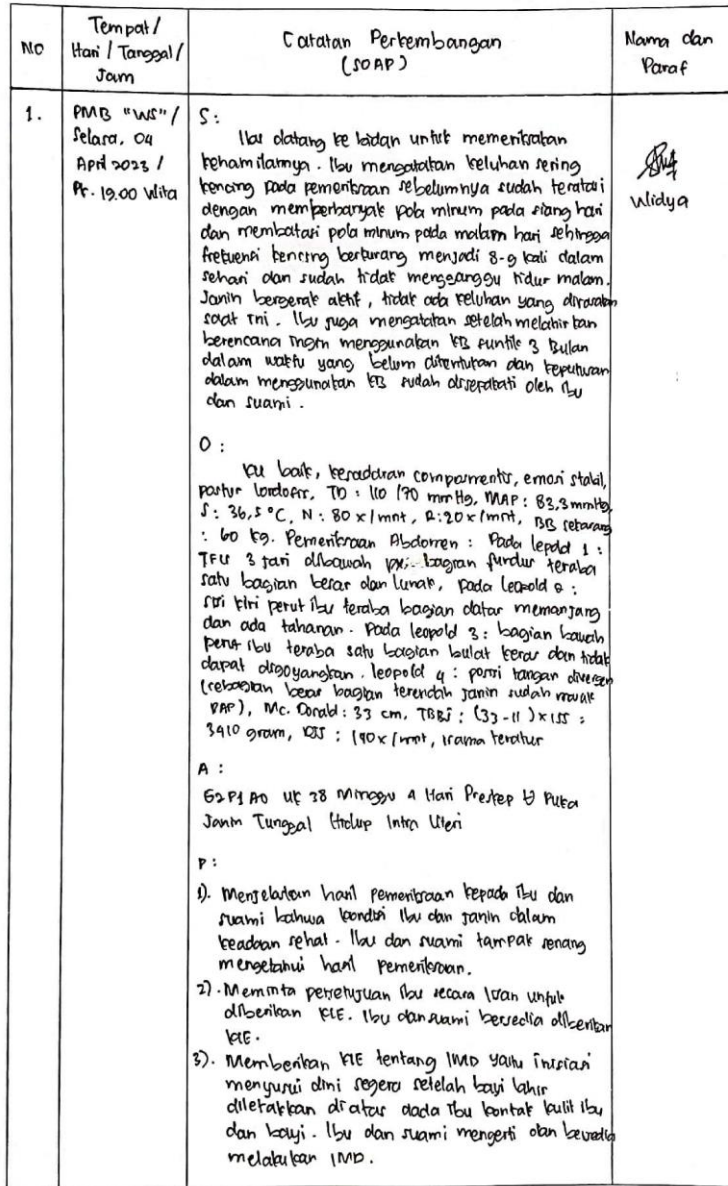 NO
Tempat/
Hari / Tanggal /
Jam
Catatan Perkembangan
(SOAP)
Nama dan
Paraf
1.
PMB "WS" /
Selasa, 04
April 2023 /
Pk. 19.00 Wita
S :
Ibu datang ke bidan untuk memeriksakan
kehamilannya. Ibu mengatakan keluhan sering
kencing pada pemeriksaan sebelumnya sudah teratasi
dengan memperbanyak pola minum pada siang hari
dan membatasi pola minum pada malam hari sehingga
frekuensi kencing berkurang menjadi 8-9 kali dalam
sehari dan sudah tidak mengganggu tidur malam.
Janin bergerak aktif, tidak ada keluhan yang dirasakan
saat ini. Ibu juga mengatakan setelah melahirkan
berencana ingin menggunakan KB suntik 3 Bulan
dalam waktu yang belum ditentukan dan keputusan
dalam menggunakan KB sudah disepakati oleh ibu
dan suami.
Widya
O :
KU baik, kesadaran composmentis, emosi stabil,
postur lordosis, TD : 110 /70 mmHg, MAP : 83,3 mmHg,
S : 36,5 °C, N : 80 x/mnt, R : 20 x/mnt, BB sekarang
: 60 kg. Pemeriksaan Abdomen : Pada lepold 1 :
TFU 3 jari dibawah px, bagian fundus teraba
satu bagian besar dan lunak, pada leopold 2 :
sisi kiri perut ibu teraba bagian datar memanjang
dan ada tahanan. Pada leopold 3 : bagian bawah
perut ibu teraba satu bagian bulat keras dan tidak
dapat digoyangkan. leopold 4 : posisi tangan divergen
(sebagian besar bagian terendah janin sudah masuk
PAP), Mc. Donald : 33 cm, TBBJ : (33-11) x 155 :
3410 gram, DJJ : 140 x/mnt, irama teratur
A :
G2P1A0 UK 38 Minggu 4 Hari Preskep U Puka
Janin Tunggal Hidup Intra Uteri
P :
1). Menjelaskan hasil pemeriksaan kepada ibu dan
suami bahwa kondisi ibu dan janin dalam
keadaan sehat. Ibu dan suami tampak senang
mengetahui hasil pemeriksaan.
2). Meminta persetujuan ibu secara lisan untuk
diberikan KIE. Ibu dan suami bersedia diberikan
KIE.
3). Memberikan KIE tentang IMD yaitu inisiasi
menyusui dini segera setelah bayi lahir
diletakkan diatas dada ibu kontak kulit ibu
dan bayi. Ibu dan suami mengerti dan bersedia
melakukan IMD.